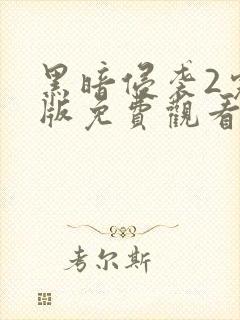 黑暗侵袭2
版免費觀看
考尔斯